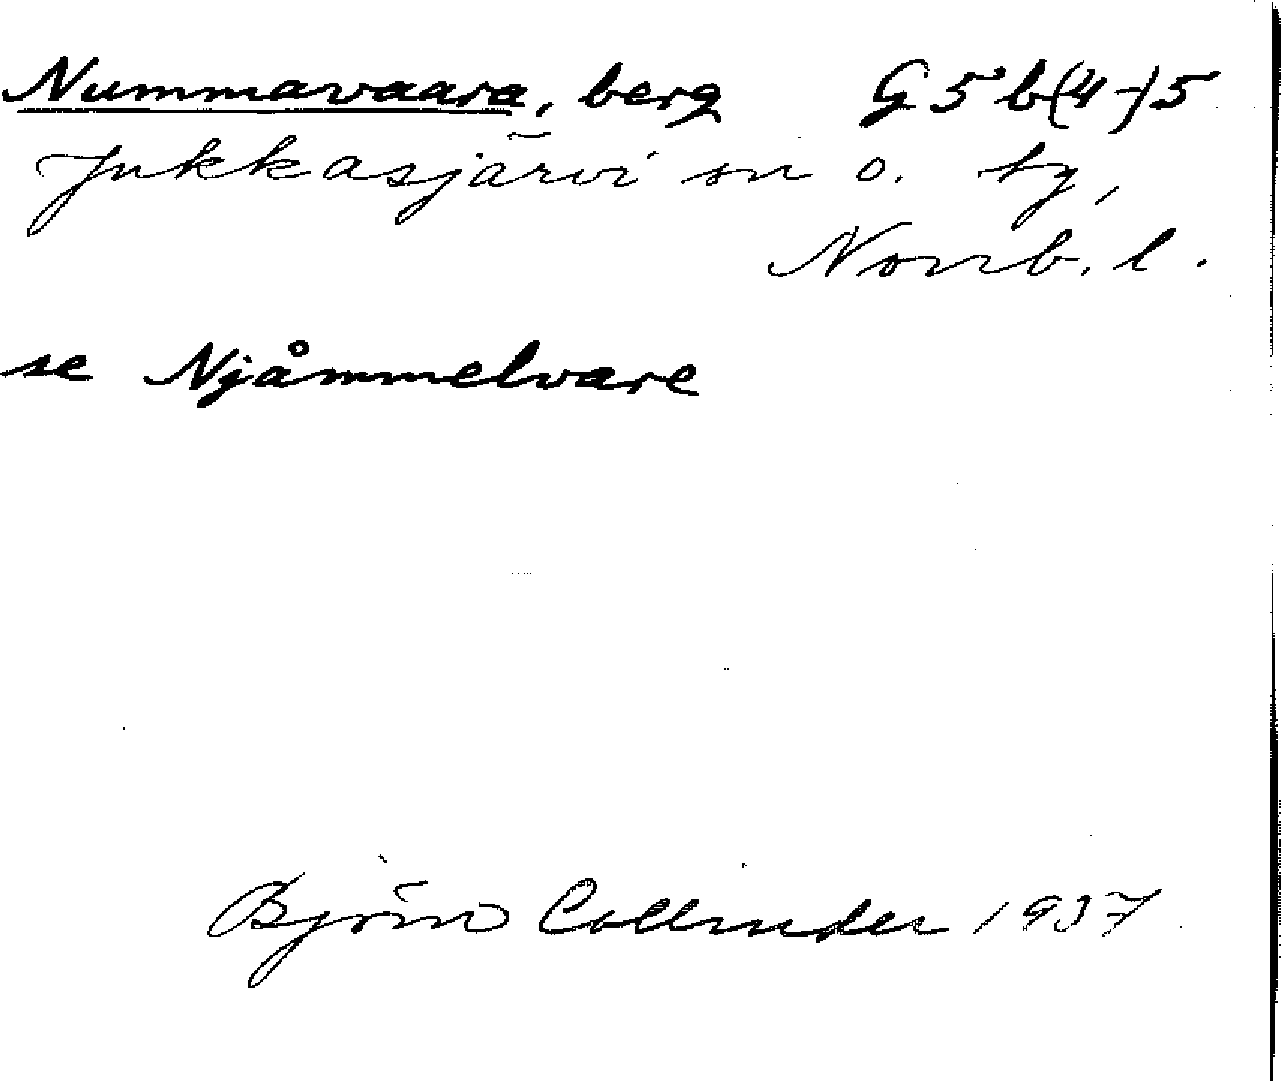 Nummavaara, berg G5b(4-)5
Jukkasjärvi sn o. tg,
Norrb. l.
se Njåmmelvare
Björn Collinder 1937